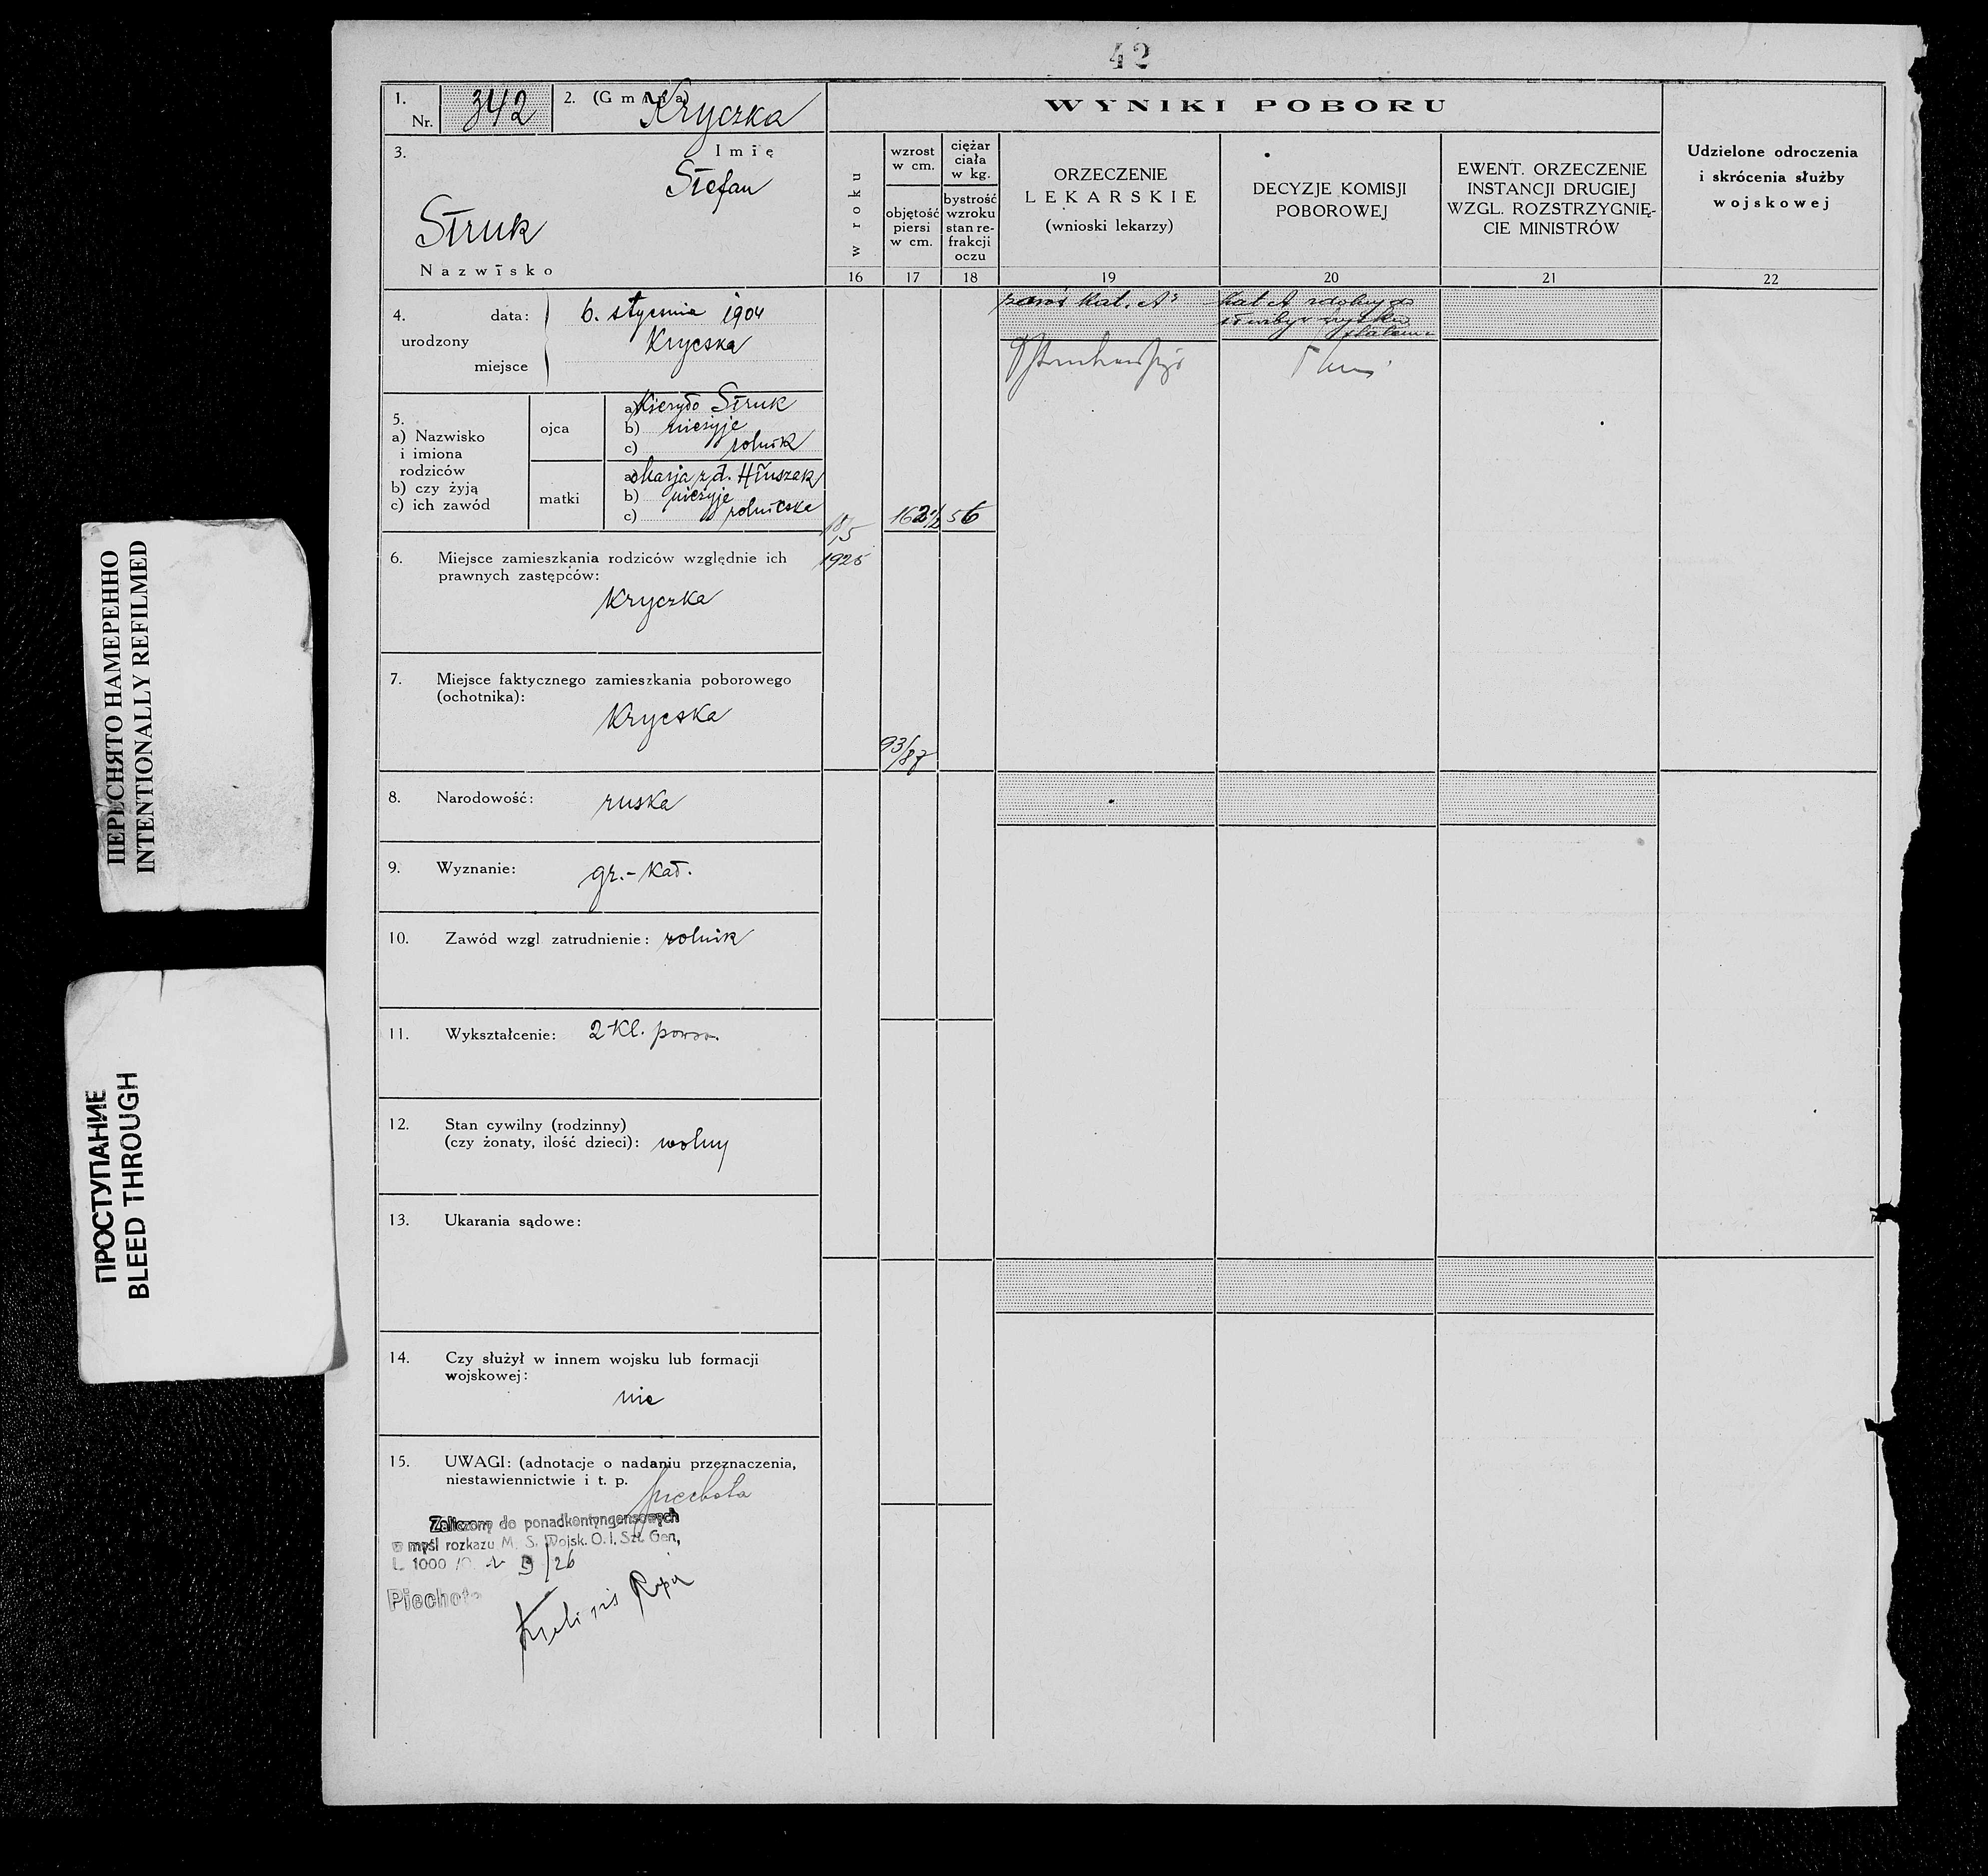 42
1.
Nr. 342
2. (Gmina) Kryczka
3.
Imię
Stefan
Struk
Nazwisko
4.
urodzony
data: 6. stycznia 1904
miejsce Kryczka
5.
a) Nazwisko
i imiona
rodziców
b) czy żyją
c) ich zawód
ojca
a) Struk
b) nieżyje
c) rolnik
matki
a) Marja z d. Hłuszak
b) nieżyje
c) rolniczka
6. Miejsce zamieszkania rodziców względnie ich
prawnych zastępców:
Kryczka
7. Miejsce faktycznego zamieszkania poborowego
(ochotnika):
Kryczka
8. Narodowość: ruska
9. Wyznanie: gr.-kat.
10. Zawód wzgl zatrudnienie: rolnik
11. Wykształcenie: 2 kl.
12. Stan cywilny (rodzinny)
(czy żonaty, ilość dzieci): wolny
13. Ukarania sądowe:
14. Czy służył w innem wojsku lub formacji
wojskowej:
nie
15. UWAGI: (adnotacje o nadaniu przeznaczenia,
niestawiennictwie i t. p.
piechota
Zaliczony do ponadkontyngensowych
w myśl rozkazu M. S. Wojsk. O. I. Szt. Gen,
L. 1000 /26
Piechota
WYNIKI POBORU
w roku
16
1925
wzrost
w cm.
objętość
piersi
w cm.
17
162 1/2
93/87
ciężar
ciała
w kg.
bystrość
wzroku
stan re-
frakcji
oczu
18
56
ORZECZENIE
LEKARSKIE
(wnioski lekarzy)
19
Kat. A
DECYZJE KOMISJI
POBOROWEJ
20
Kat A zdolny do
EWENT. ORZECZENIE
INSTANCJI DRUGIEJ
WZGL. ROZSTRZYGNIĘ-
CIE MINISTRÓW
21
Udzielone odroczenia
i skrócenia służby
wojskowej
22
ПЕРЕСНЯТО НАМЕРЕННО
INTENTIONALLY REFILMED
ПРОСТУПАНИЕ
BLEED THROUGH